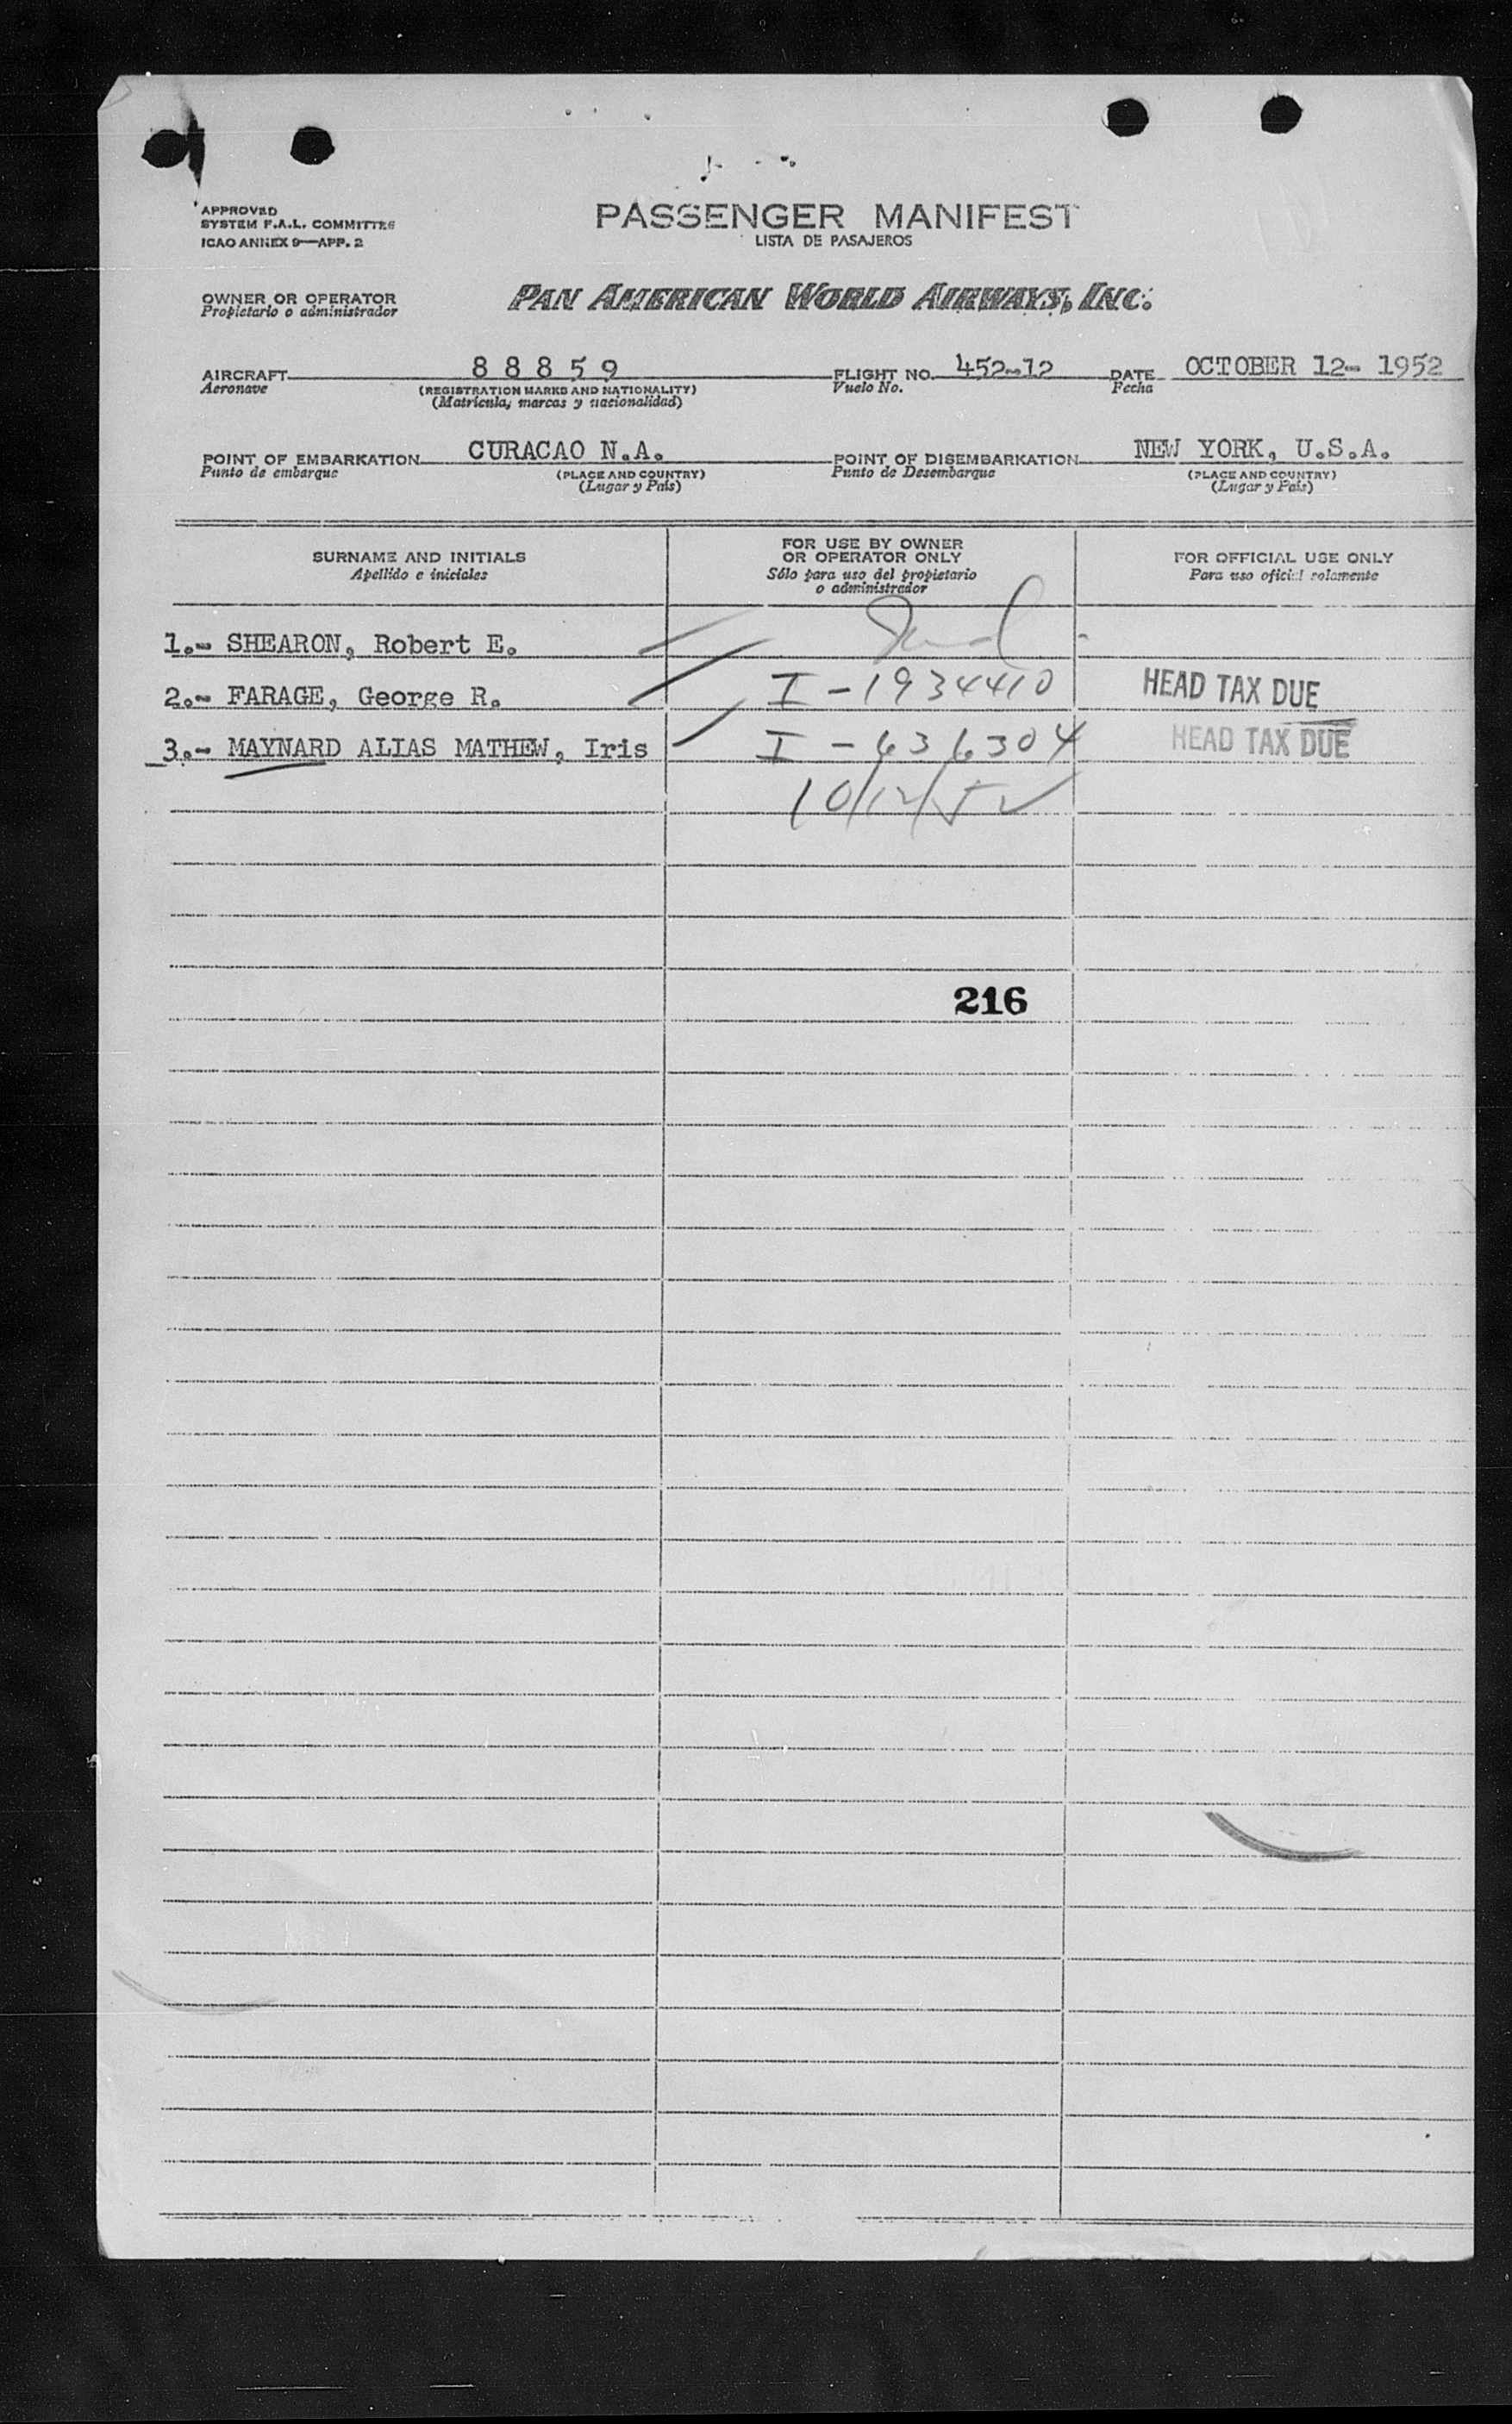 APPROVED
SYSTEM F.A.L. COMMITTEE
ICAO ANNEX 9—APP. 2
PASSENGER MANIFEST
LISTA DE PASAJEROS
OWNER OR OPERATOR
Propietario o administrador
PAN AMERICAN WORLD AIRWAYS, INC.
AIRCRAFT 88859 FLIGHT NO. 452-12 DATE OCTOBER 12- 1952
Aeronave (REGISTRATION MARKS AND NATIONALITY) Vuelo No. Fecha
(Matrícula, marcas y nacionalidad)
POINT OF EMBARKATION CURACAO N.A. POINT OF DISEMBARKATION NEW YORK, U.S.A.
Punto de embarque (PLACE AND COUNTRY) Punto de Desembarque (PLACE AND COUNTRY)
(Lugar y País) (Lugar y País)
SURNAME AND INITIALS
Apellido e iniciales
FOR USE BY OWNER
OR OPERATOR ONLY
Sólo para uso del propietario
o administrador
FOR OFFICIAL USE ONLY
Para uso oficial solamente
1.- SHEARON, Robert E.
2.- FARAGE, George R. I-1934410 HEAD TAX DUE
3.- MAYNARD ALIAS MATHEW, Iris I-636304 HEAD TAX DUE
10/12/52
216